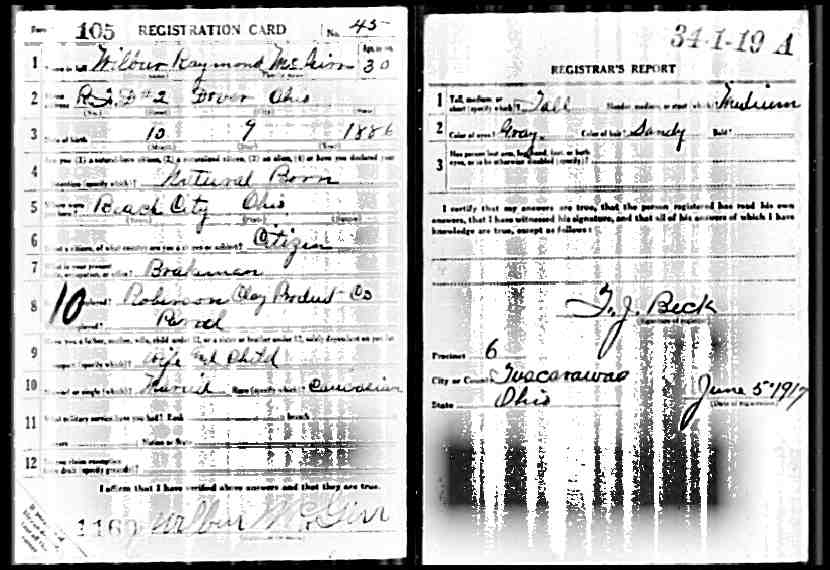 Form 105 REGISTRATION CARD No. 45
1 Wilbur Raymond Age, in yrs. 30
2 R.F.D #2 Dover Ohio
(No.) (Street) (City) (State)
3 Date of birth 10 9 1886
(Month) (Day) (Year)
4 Are you (1) a natural-born citizen, (2) a naturalized citizen, (3) an alien, (4) or have you declared your
intention (specify which)? Natural Born
5 Where were you born? Beach City Ohio
(Town) (State) (Nation)
6 If not a citizen, of what country are you a citizen or subject? Citizen
7 What is your present trade, occupation, or office? Brakeman
8 10 Robinson Clay Product Co
9 Have you a father, mother, wife, child under 12, or a sister or brother under 12, solely dependent on you for
support (specify which)? Wife and Child
10 Married or single (which)? Married Race (specify which)? Caucasian
11 What military service have you had? Rank branch
years Nation or State
12 Do you claim exemption
from draft (specify grounds)?
I affirm that I have verified above answers and that they are true.
1160 Wilbur
34-1-19 A
REGISTRAR'S REPORT
1 Tall, medium, or short (specify which)? Tall Slender, medium, or stout (which)? Medium
2 Color of eyes? Gray Color of hair? Sandy Bald?
3 Has person lost arm, leg, hand, foot, or both
eyes, or is he otherwise disabled (specify)?
I certify that my answers are true, that the person registered has read his own
answers, that I have witnessed his signature, and that all of his answers of which I have
knowledge are true, except as follows:
T. J. Beck
(Signature of registrar)
Precinct 6
City or County Tuscarawas
State Ohio
June 5-1917
(Date of registration)